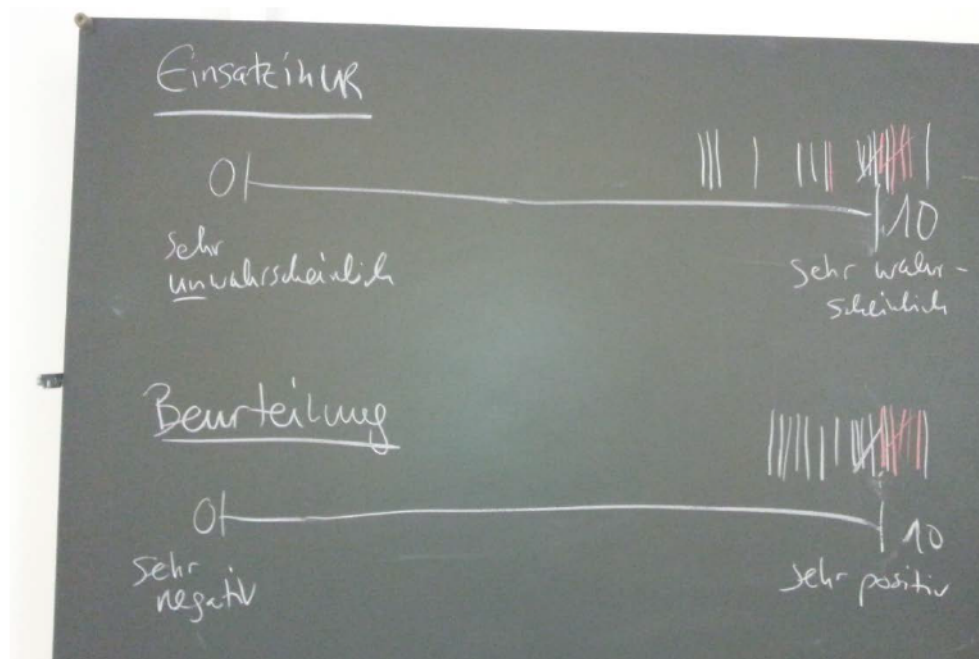 Einsatz in UR
0 10
sehr
unwahrscheinlich
sehr wahr-
scheinlich
Beurteilung
0 10
sehr
negativ
sehr positiv